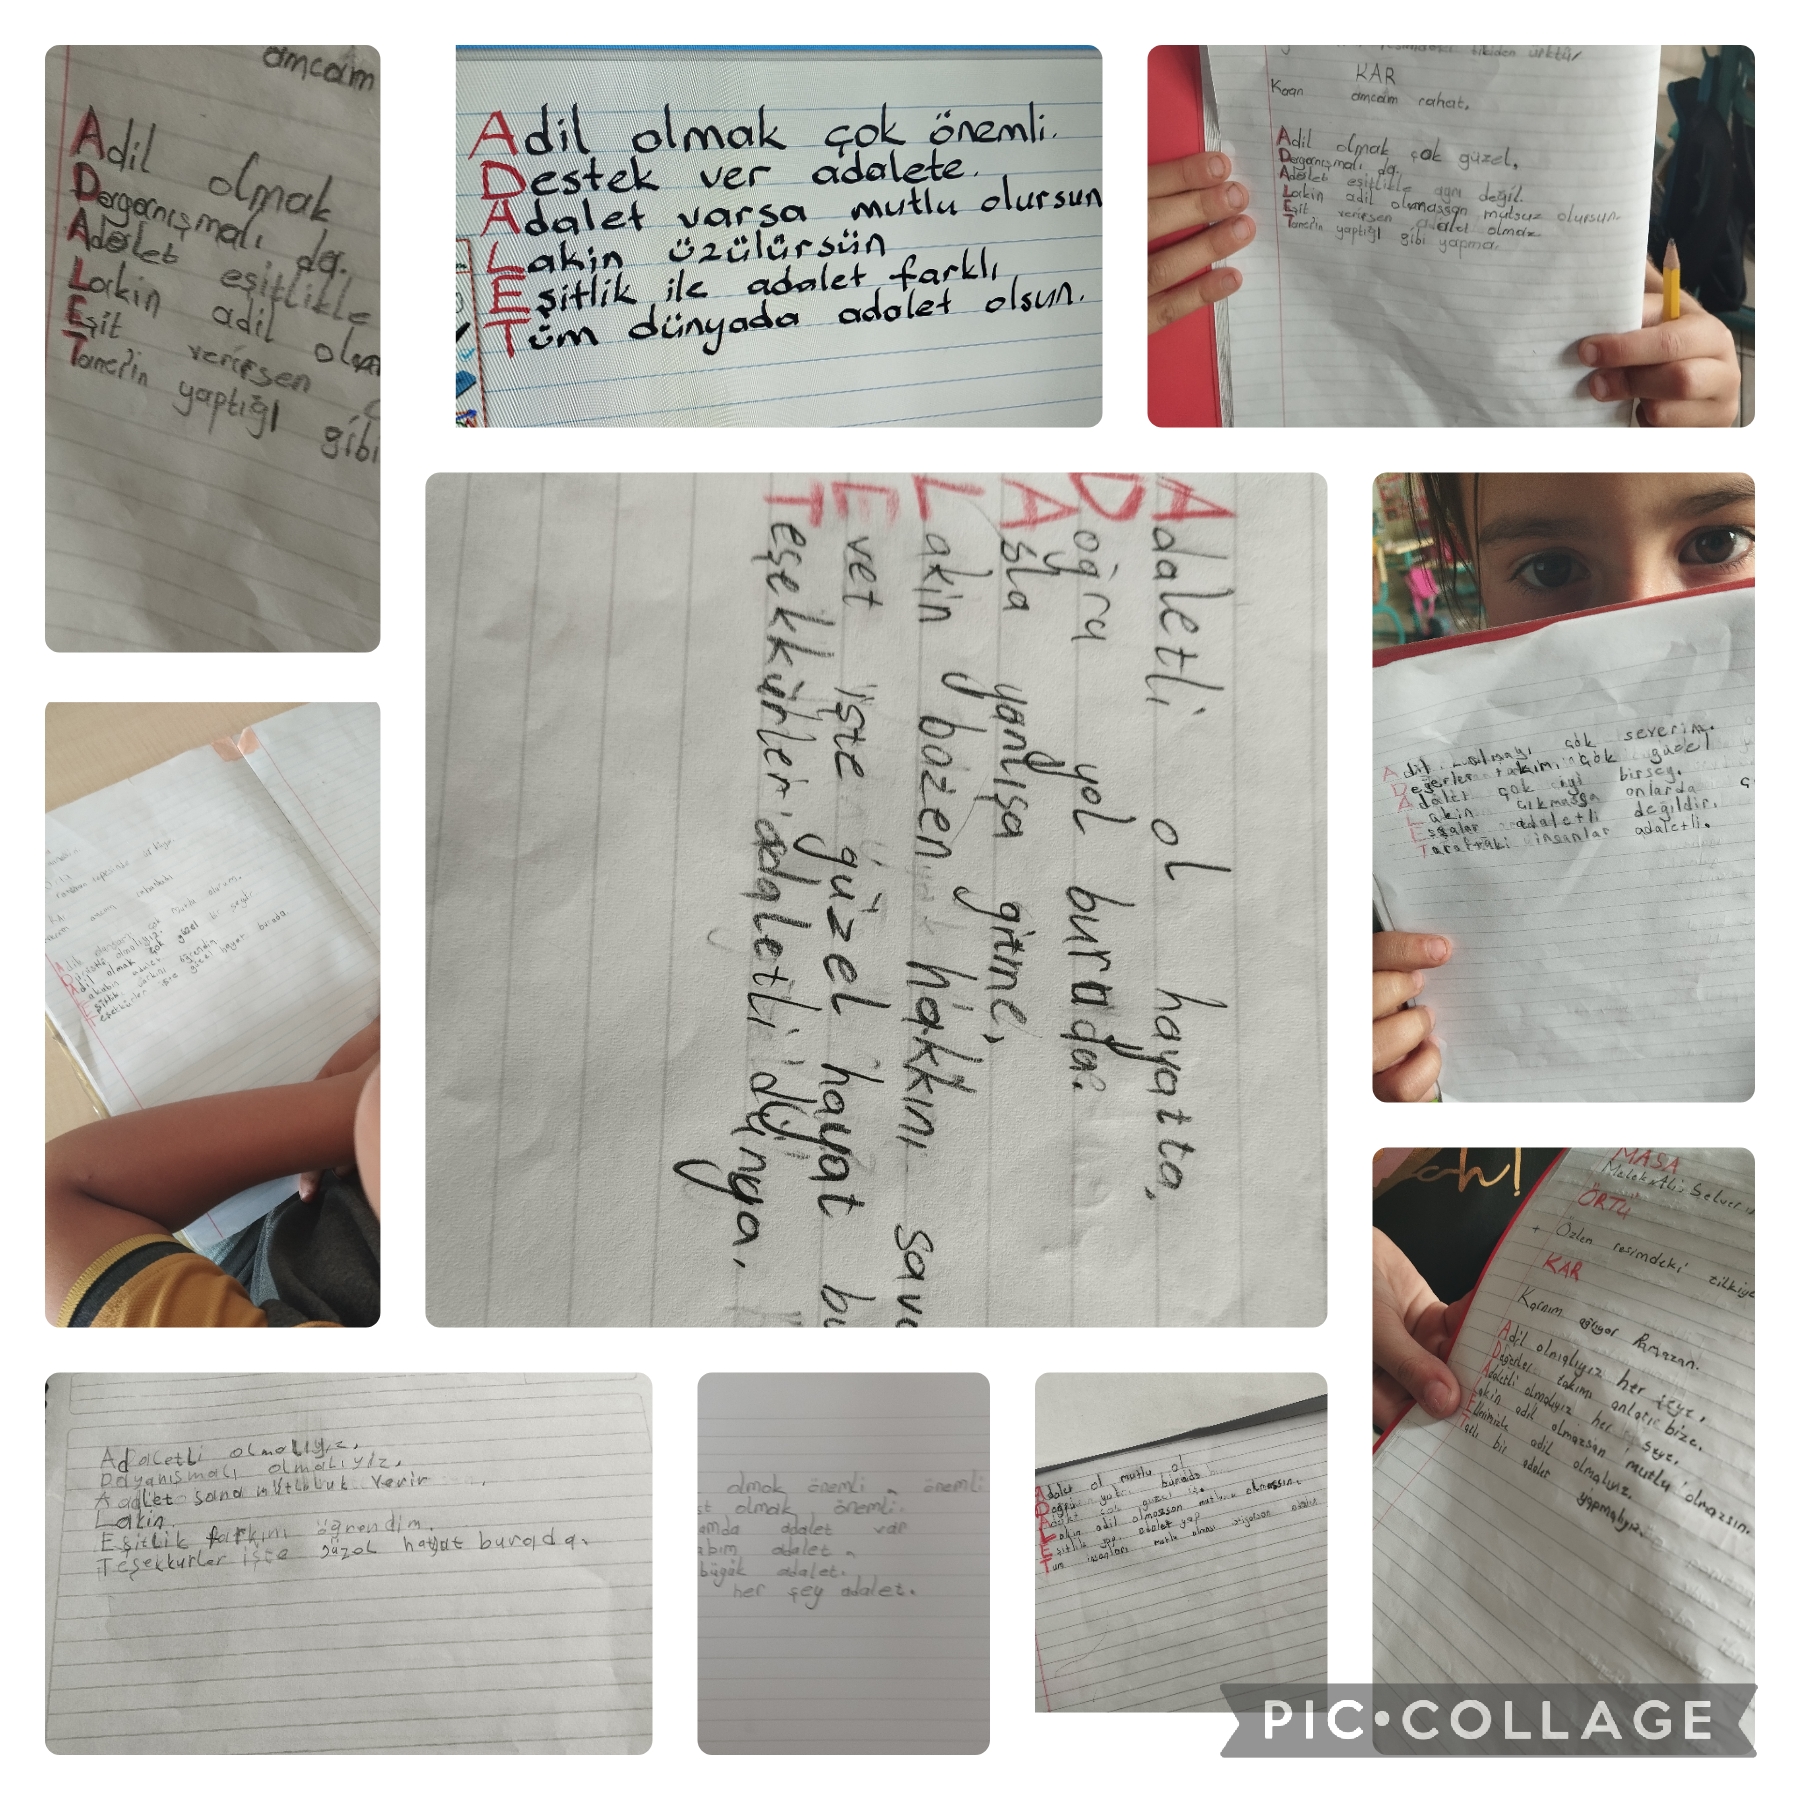 amcam
Adil olmak
Dayanışmalı da.
Adalet eşitlikle
Lakin adil
Eşit verirsen
Taner'in yaptığı gibi
Adil olmak çok önemli.
Destek ver adalete.
Adalet varsa mutlu olursun
Lakin üzülürsün
Eşitlik ile adalet farklı
Tüm dünyada adalet olsun.
KAR
Kaan amcam rahat.
Adil olmak çok güzel,
Dayanışmalı da.
Adalet eşitlikle aynı değil.
Lakin adil olmassan mutsuz olursun.
Eşit verirsen adalet olmaz
Taner'in yaptığı gibi yapma.
Adaletli ol hayatta,
Doğru yol burada.
Asla yanlışa gitme,
Lakin bazen hakkını savu
Evet işte güzel hayat bu
Teşekkürler adaletli dünya.
Adil olmayı çok severim.
Değerler takım, çok güzel
Adalet çok iyi birşey.
Lakin çıkmassa onlarda
Eşyalar adaletli değildir.
Taraftaki insanlar adaletli.
mutlu olurum.
Dürüstte olmalıyız.
Adil olmak çok güzel bir şeydir
adalet
Eşitlik farkını öğrendin
Teşekkürler işte güzel hayat burada.
MASA
ÖRTÜ
Özlen resimdeki tilkiye
KAR
Karnım ağlıyor Ramazan.
Adil olmalıyız her şeye,
Değerler takımı anlatır bize.
Adaletli olmalıyız her şeye,
Lakin adil olmazsan mutlu olmazsın.
Elimizle adil olmalıyız.
Tatlı bir adalet yapmalıyız.
Adaletli olmalıyız.
Dayanışmalı olmalıyız.
Aadlet sana mutluluk verir
Lakin.
Eşitlik farkını öğrendim.
Teşekkurler işte güzel hayat burada.
olmak önemli önemli
st olmak önemli.
amda adalet var
abım adalet
büyük adalet.
her şey adalet.
Adalet ol mutlu ol
Doğrunun yolu burada
Adalet çok güzel
Lakin adil olmassan mutlu olmassın.
Eşitlik yap adalet yap
Tüm insanları mutlu
PIC•COLLAGE